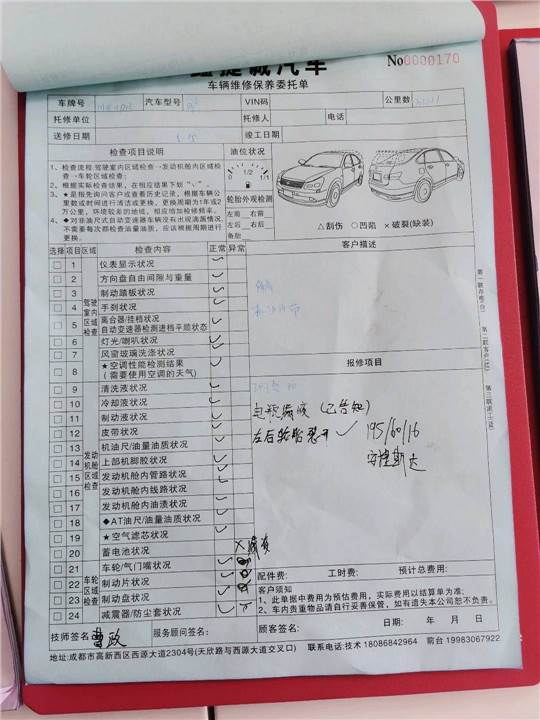 鑫捷诚汽车
No0000170
车辆维修保养委托单
车牌号 汽车型号 VIN码 公里数
托修单位 托修人 电话
送修日期 竣工日期
检查项目说明 油位状况
1、检查流程:驾驶室内区域检查→发动机舱内区域检查→车轮区域检查;
2、根据实际检查结果,在相应结果下划“√”。
3、★是指先询问客户或查看历史记录,根据车辆公里数或时间进行清洁或更换,更换周期为1年或2万公里,环境较差的地域,相应增加检修频率。
4、◆对非油尺式自动变速器车辆没有出现渗漏情况,不需要每次都检查油量油质,应该根据周期进行更换。
0 1/2 1/1
轮胎外观检测
左前 右前
左后 右后
备胎
△刮伤 ○凹陷 ×破裂(缺装)
选择 项目 区域 检查内容 正常 异常 客户描述
驾驶室内区域检查
1 仪表显示状况
2 方向盘自由间隙与重量
3 制动踏板状况
4 手刹状况
5 离合器/挂档状况
自动变速器检测进档平顺状态
6 灯光/喇叭状况
7 风窗玻璃洗涤状况
8 ★空调性能检测结果
(需要使用空调的天气)
报修项目
发动机舱区域检查
9 清洗液状况
10 冷却液状况
11 制动液状况
12 皮带状况
13 机油油尺/油量油质状况
14 上部机脚胶状况
15 发动机舱内管路状况
16 发动机舱内线路状况
17 发动机舱内油渍状况
18 ◆AT油尺/油量油质状况
19 ★空气滤芯状况
20 蓄电池状况
电瓶漏液(已告知)
左后轮胎裂开 ✓ 195/60/16
安捷斯达
车轮区域检查
21 车轮/气门嘴状况
22 制动片状况
23 制动盘状况
24 减震器/防尘套状况
配件费: 工时费: 预计总费用:
客户须知
1、此单据中费用为预估费用,实际费用以结算单为准;
2、车内贵重物品请自行妥善保管,如有遗失本公司恕不负责。
技师签名 曹政 服务顾问签名: 顾客签名: 日期: 年 月 日
地址:成都市高新西区西源大道2304号(天欣路与西源大道交叉口) 联系电话:技术 18086842964 前台 19983067922